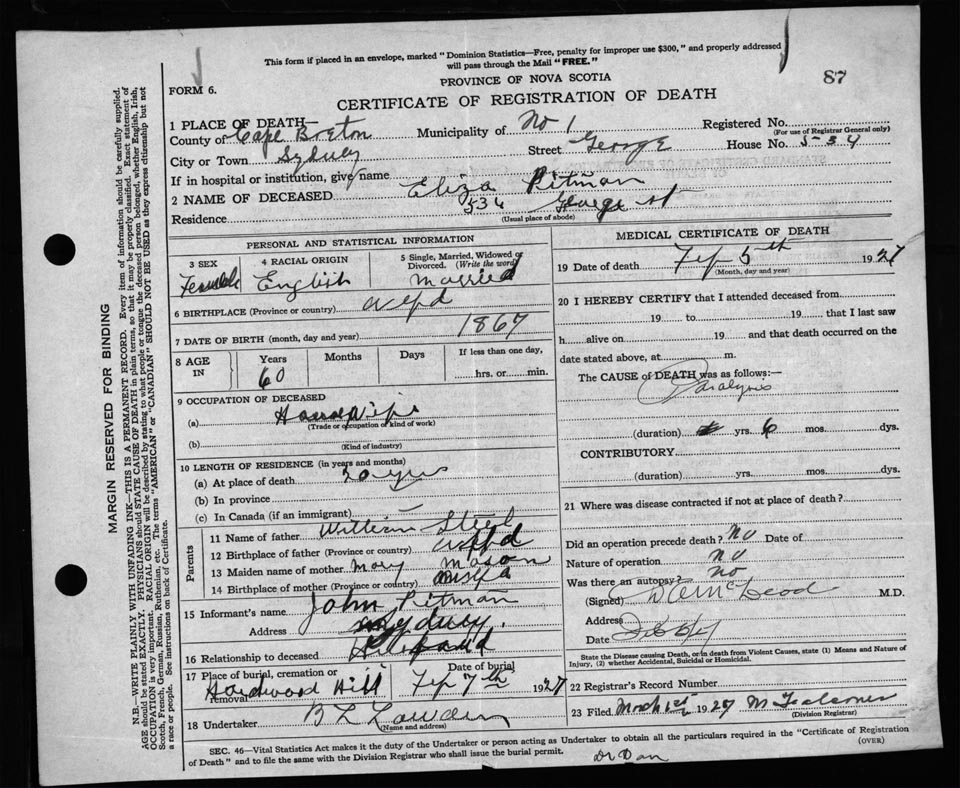 This form if placed in an envelope, marked "Dominion Statistics—Free, penalty for improper use $300," and properly addressed
will pass through the Mail "FREE."
87
FORM 6.
PROVINCE OF NOVA SCOTIA
CERTIFICATE OF REGISTRATION OF DEATH
1 PLACE OF DEATH—
County of Cape Breton Municipality of No 1 Registered No.
(For use of Registrar General only)
City or Town Sydney Street George House No. 534
If in hospital or institution, give name
2 NAME OF DECEASED Eliza Pitman
Residence 534 George st
(Usual place of abode)
PERSONAL AND STATISTICAL INFORMATION
3 SEX 4 RACIAL ORIGIN 5 Single, Married, Widowed or Divorced. (Write the word)
Female English Married
6 BIRTHPLACE (Province or country) nfld
7 DATE OF BIRTH (month, day and year) 1867
8 AGE IN Years Months Days If less than one day,
60 hrs. or min.
9 OCCUPATION OF DECEASED
(a) HouseWife
(Trade or occupation or kind of work)
(b)
(Kind of industry)
10 LENGTH OF RESIDENCE (in years and months)
(a) At place of death 20 yrs
(b) In province
(c) In Canada (if an immigrant)
Parents
11 Name of father William Steel
12 Birthplace of father (Province or country) nfld
13 Maiden name of mother Mary Mason
14 Birthplace of mother (Province or country)
15 Informant's name John Pitman
Address Sydney.
16 Relationship to deceased Husband
17 Place of burial, cremation or removal Hardwood Hill Date of burial Feb 7th 1927
18 Undertaker B L
(Name and address)
MEDICAL CERTIFICATE OF DEATH
19 Date of death Feb 5th 1927
(Month, day and year)
20 I HEREBY CERTIFY that I attended deceased from
19 to 19 that I last saw
h alive on 19 and that death occurred on the
date stated above, at m.
The CAUSE of DEATH was as follows:—
Paralysis
(duration) yrs. 6 mos. dys.
CONTRIBUTORY
(duration) yrs. mos. dys.
21 Where was disease contracted if not at place of death?
Did an operation precede death? No Date of
Nature of operation No
Was there an autopsy? no
(Signed) McLeod M.D.
Address
Date
State the Disease causing Death, or in death from Violent Causes, state (1) Means and Nature of
Injury, (2) whether Accidental, Suicidal or Homicidal.
22 Registrar's Record Number
23 Filed March 1927 M
(Division Registrar)
SEC. 46—Vital Statistics Act makes it the duty of the Undertaker or person acting as Undertaker to obtain all the particulars required in the "Certificate of Registration
of Death" and to file the same with the Division Registrar who shall issue the burial permit. (OVER)
Dr Dan
MARGIN RESERVED FOR BINDING
N.B.—WRITE PLAINLY WITH UNFADING INK—THIS IS A PERMANENT RECORD. Every item of information should be carefully supplied.
AGE should be stated EXACTLY. PHYSICIANS should STATE CAUSE OF DEATH in plain terms, so that it may be properly classified. Exact statement of
OCCUPATION is very important. RACIAL ORIGIN will be described by stating to what people or tongue the deceased person belonged, whether English, Irish,
Scotch, French, German, Russian, Ruthenian, etc. The terms "AMERICAN" or "CANADIAN" SHOULD NOT BE USED as they express citizenship but not
a race or people. See instructions on back of Certificate.